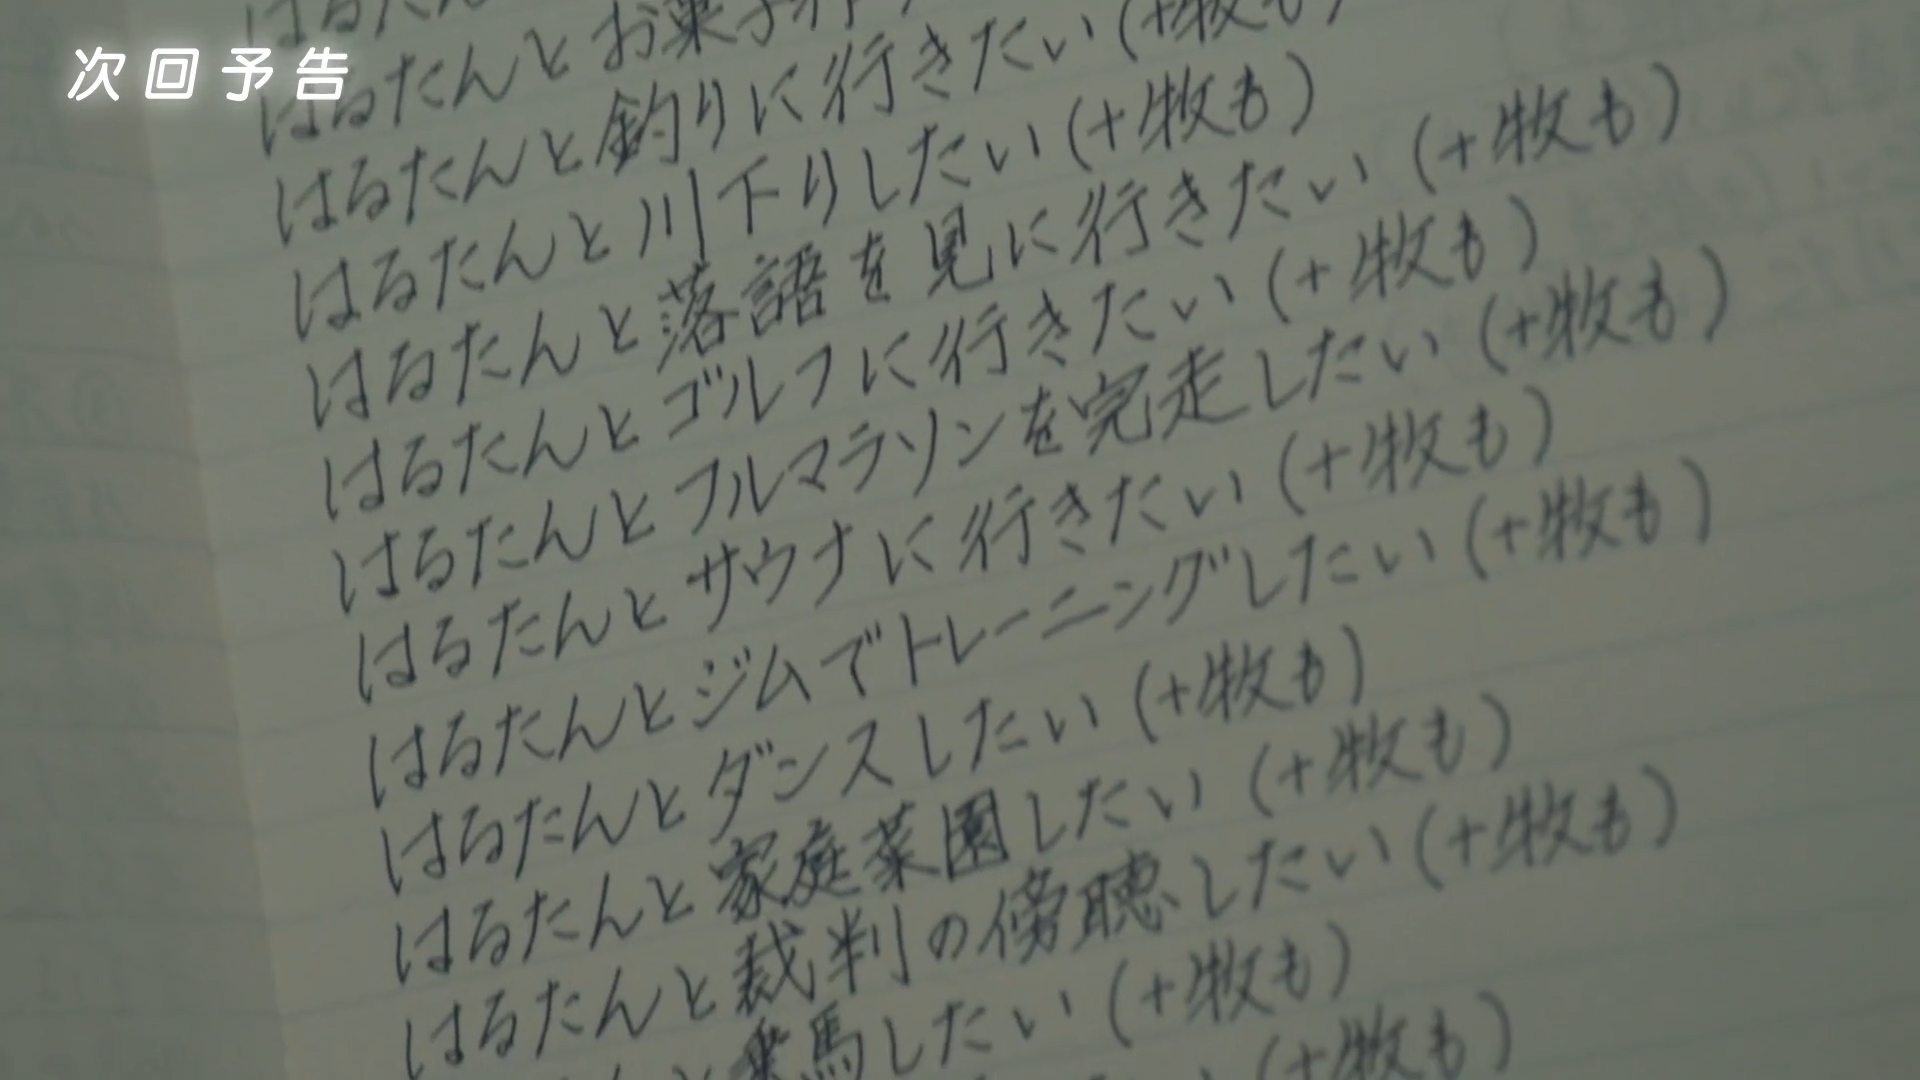 次回予告
はるたん
はるたんとお菓子作
はるたんと釣りに行きたい(+牧も)
はるたんと川下りしたい(+牧も)
はるたんと落語を見に行きたい(+牧も)
はるたんとゴルフに行きたい(+牧も)
はるたんとフルマラソンを完走したい(+牧も)
はるたんとサウナに行きたい(+牧も)
はるたんとジムでトレーニングしたい(+牧も)
はるたんとダンスしたい(+牧も)
はるたんと家庭菜園したい(+牧も)
はるたんと裁判の傍聴したい(+牧も)
んと乗馬したい(+牧も)
(+牧も)